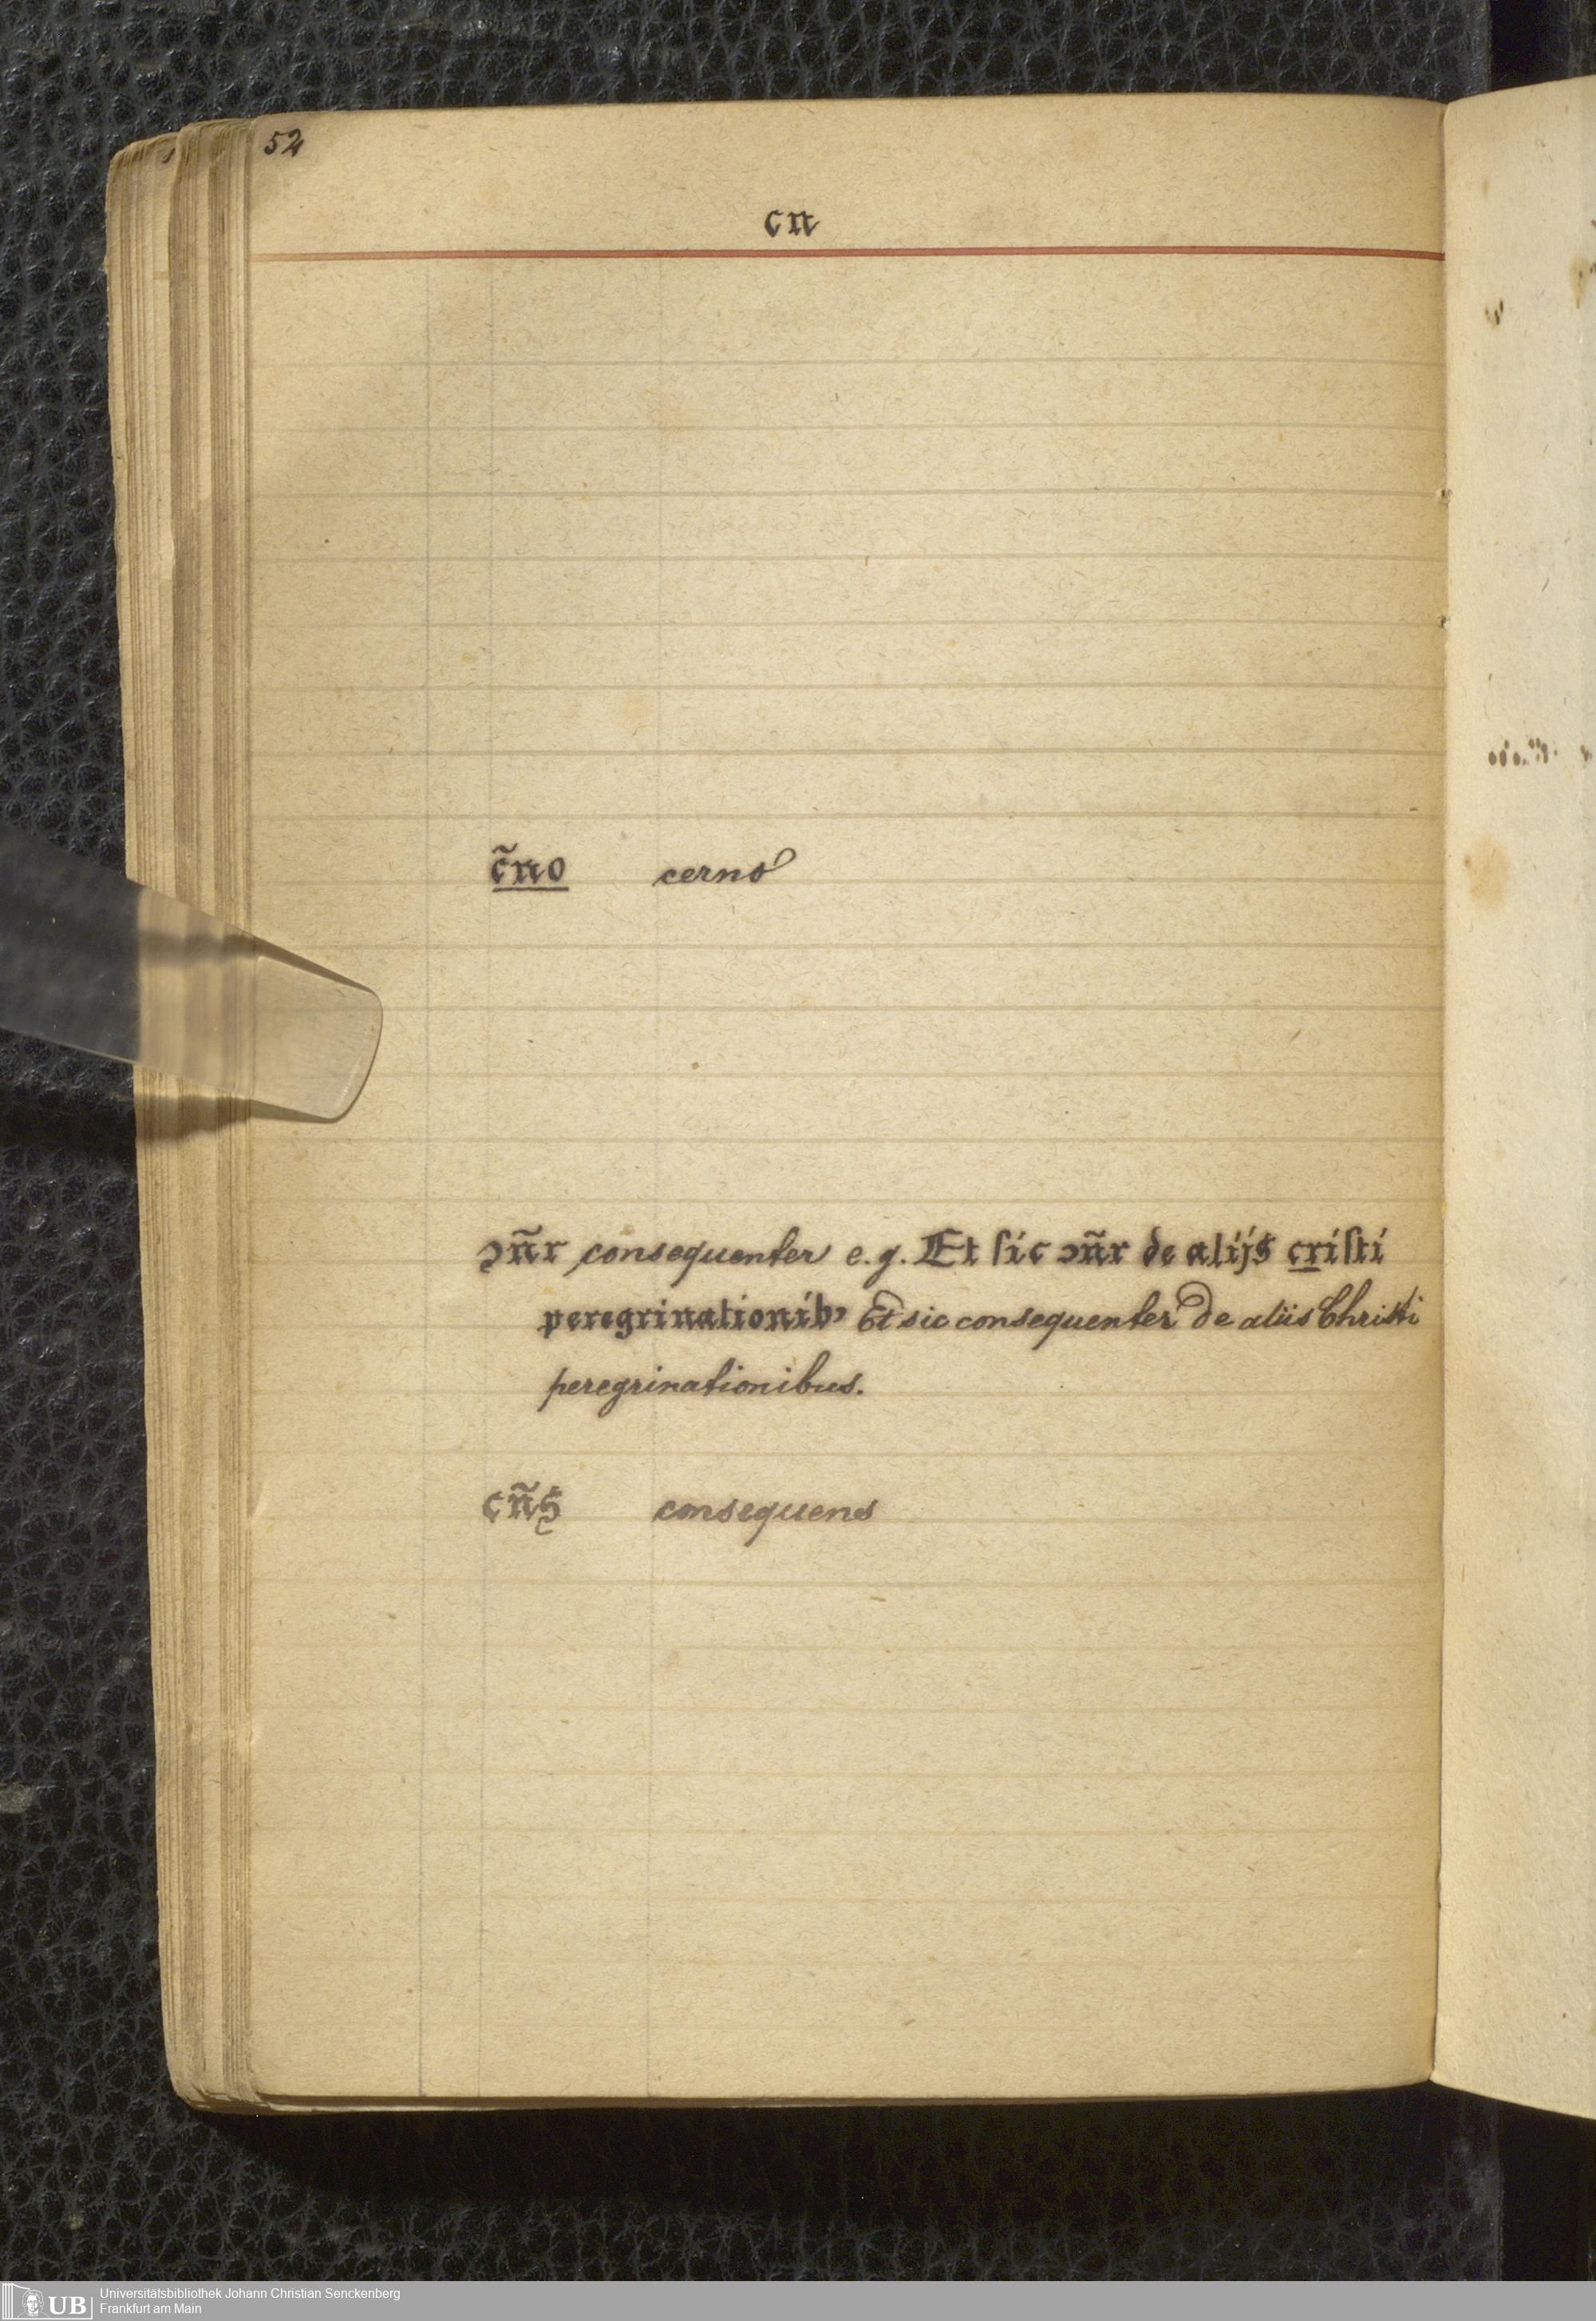 52
cn
c̃no cerno
ↄñr consequenter e.g. Et ſic ↄñr de alijs criſti
peregrinationibꝰ Et sic consequenter de aliis Christi
peregrinationibus.
cñs consequens
UB Universitätsbibliothek Johann Christian Senckenberg
Frankfurt am Main